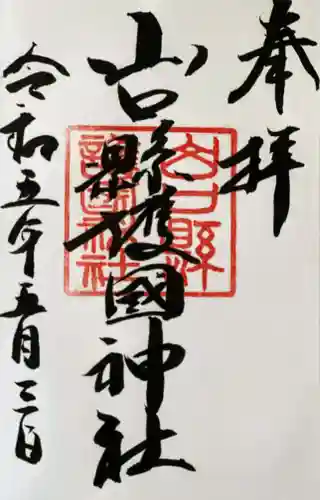 奉拝
山口縣護國神社
山口縣護國神社
令和五年五月三日